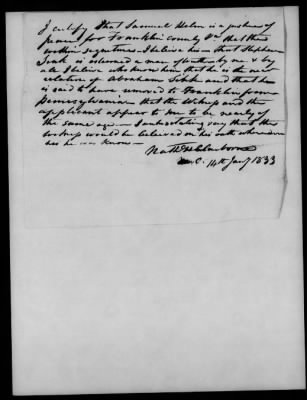 I certify that Samuel Helm is a justice of
peace for Franklin county Va that the
within signature I believe his – that Stephen
is esteemed a man of truth by me & by
all I believe who know him that he is the
of Abraham and that he
is said to have moved to Franklin from
Pennsylvania – that the Witness and the
applicant appear to me to be nearly of
the same age – I unhesitatingly say that the
would be believed on his oath wherever
he was known –
Nath H Claiborne
14th Jany 1833